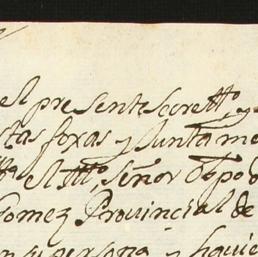 el presente secrett.o y
stas foxas y Juntame
el Ill.o Señor Obpo d
Gomez Prouincial de
en su persona y hauie